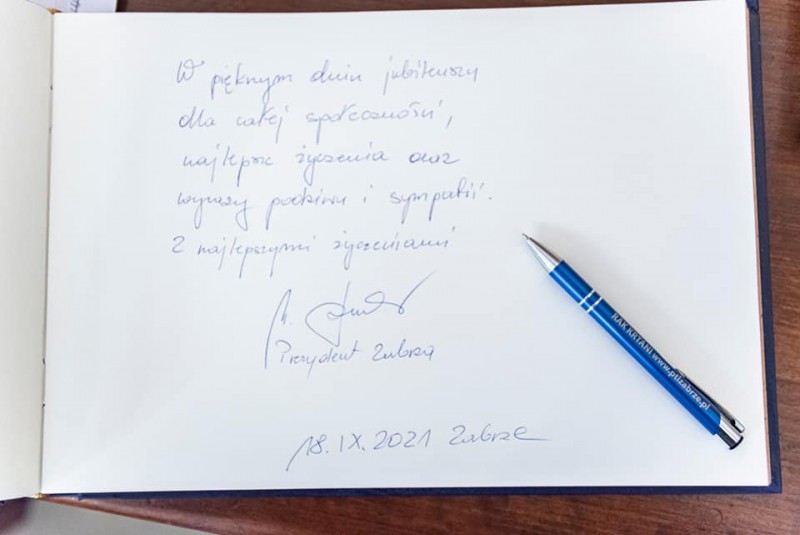 W pięknym dniu jubileuszy
dla całej społeczności,
najlepsze życzenia oraz
wyrazy podziwu i sympatii.
Z najlepszymi życzeniami
Prezydent Zabrza
18.IX.2021 Zabrze
RAK KRTANI www.ptlzabrze.pl